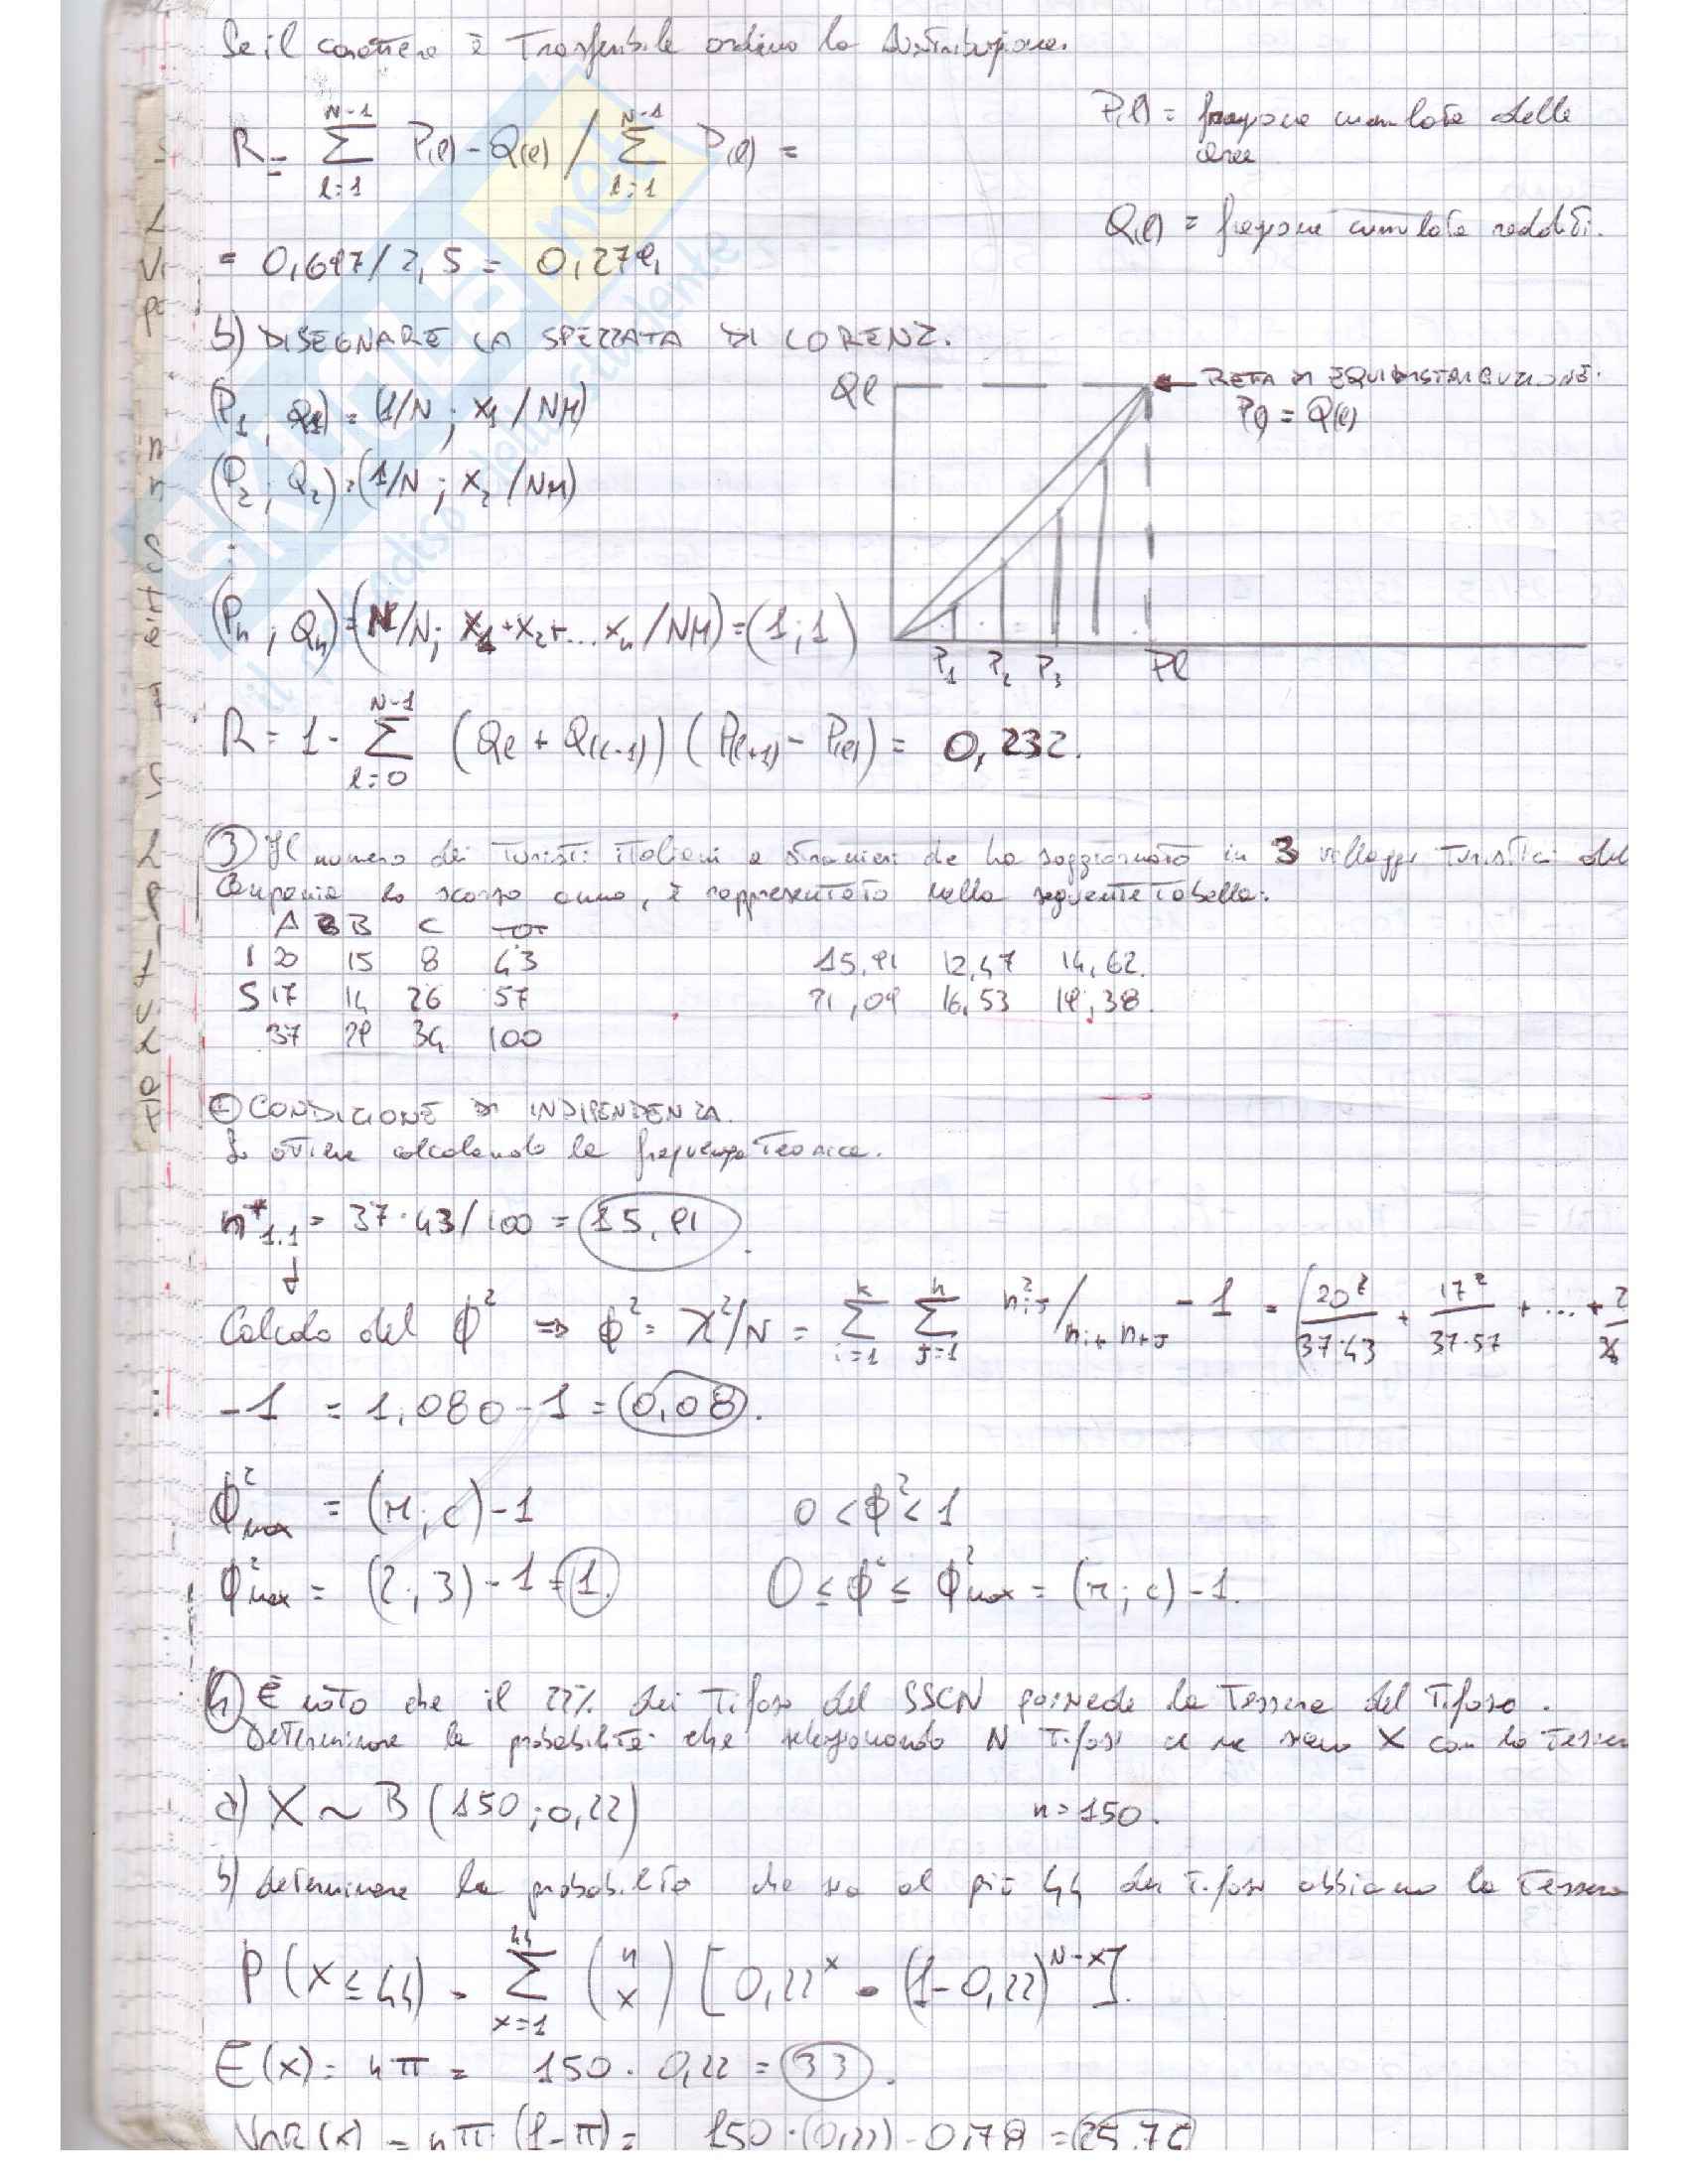 Se il carattere è Trasferibile ordino la distribuzione.
R = N-1 Σ l=1 P(l) - Q(l) / N-1 Σ l=1 P(l) =
P(l) = frazione cumulata delle
Q(l) = frazione cumulata redditi.
= 0,697/2,5 = 0,279
b) DISEGNARE LA SPEZZATA DI LORENZ.
Ql
RETTA DI EQUIDISTRIBUZIONE.
P(l) = Q(l)
(P1 ; Q1) = (1/N ; x1 / NM)
(P2 ; Q2) = (1/N ; x2 / NM)
(Pn ; Qn) = (N/N ; x1 + x2 + ... xn / NM) = (1 ; 1)
P1 P2 P3 Pl
R = 1 - N-1 Σ l=0 (Ql + Q(l-1)) (P(l+1) - P(l)) = 0,232.
③ Il numero dei Turisti italiani e stranieri che ha soggiornato in 3 villaggi Turistici del
Campania lo scorso anno, è rappresentato nella seguente Tabella:
A B C TOT
I 20 15 8 43 15,91 12,47 14,62.
S 17 14 26 57 21,09 16,53 19,38.
37 29 34 100
CONDIZIONE DI INDIPENDENZA.
Si ottiene calcolando le frequenze Teoriche.
n*1.1 = 37·43/100 = 15,91
Calcolo del ϕ² ⇒ ϕ² = X²/N = k Σ i=1 h Σ j=1 n²ij / ni+ n+j - 1 = (20²/37·43 + 17²/37·57 + ... + 2
-1 = 1,080 - 1 = 0,08.
ϕ²max = (r ; c) - 1 0 < ϕ² < 1
ϕ²max = (2 ; 3) - 1 = 1. 0 ≤ ϕ² ≤ ϕ²max = (r ; c) - 1.
④ È noto che il 22% dei Tifosi del SSCN possiede la Tessera del Tifoso.
Determinare la probabilità che selezionando N Tifosi ce ne siano X con la Tesser
a) X ~ B (150 ; 0,22) n = 150.
b) determinare la probabilità che sia al più 44 dei Tifosi abbiano la Tessera
P (X ≤ 44) = 44 Σ x=1 (n x) [0,22^x · (1-0,22)^N-x].
E(x) = nπ = 150 · 0,22 = 33.
VAR(x) = nπ (1-π) = 150 · (0,22) · 0,78 = 25,74
SKUOLA.net
il paradiso dello studente